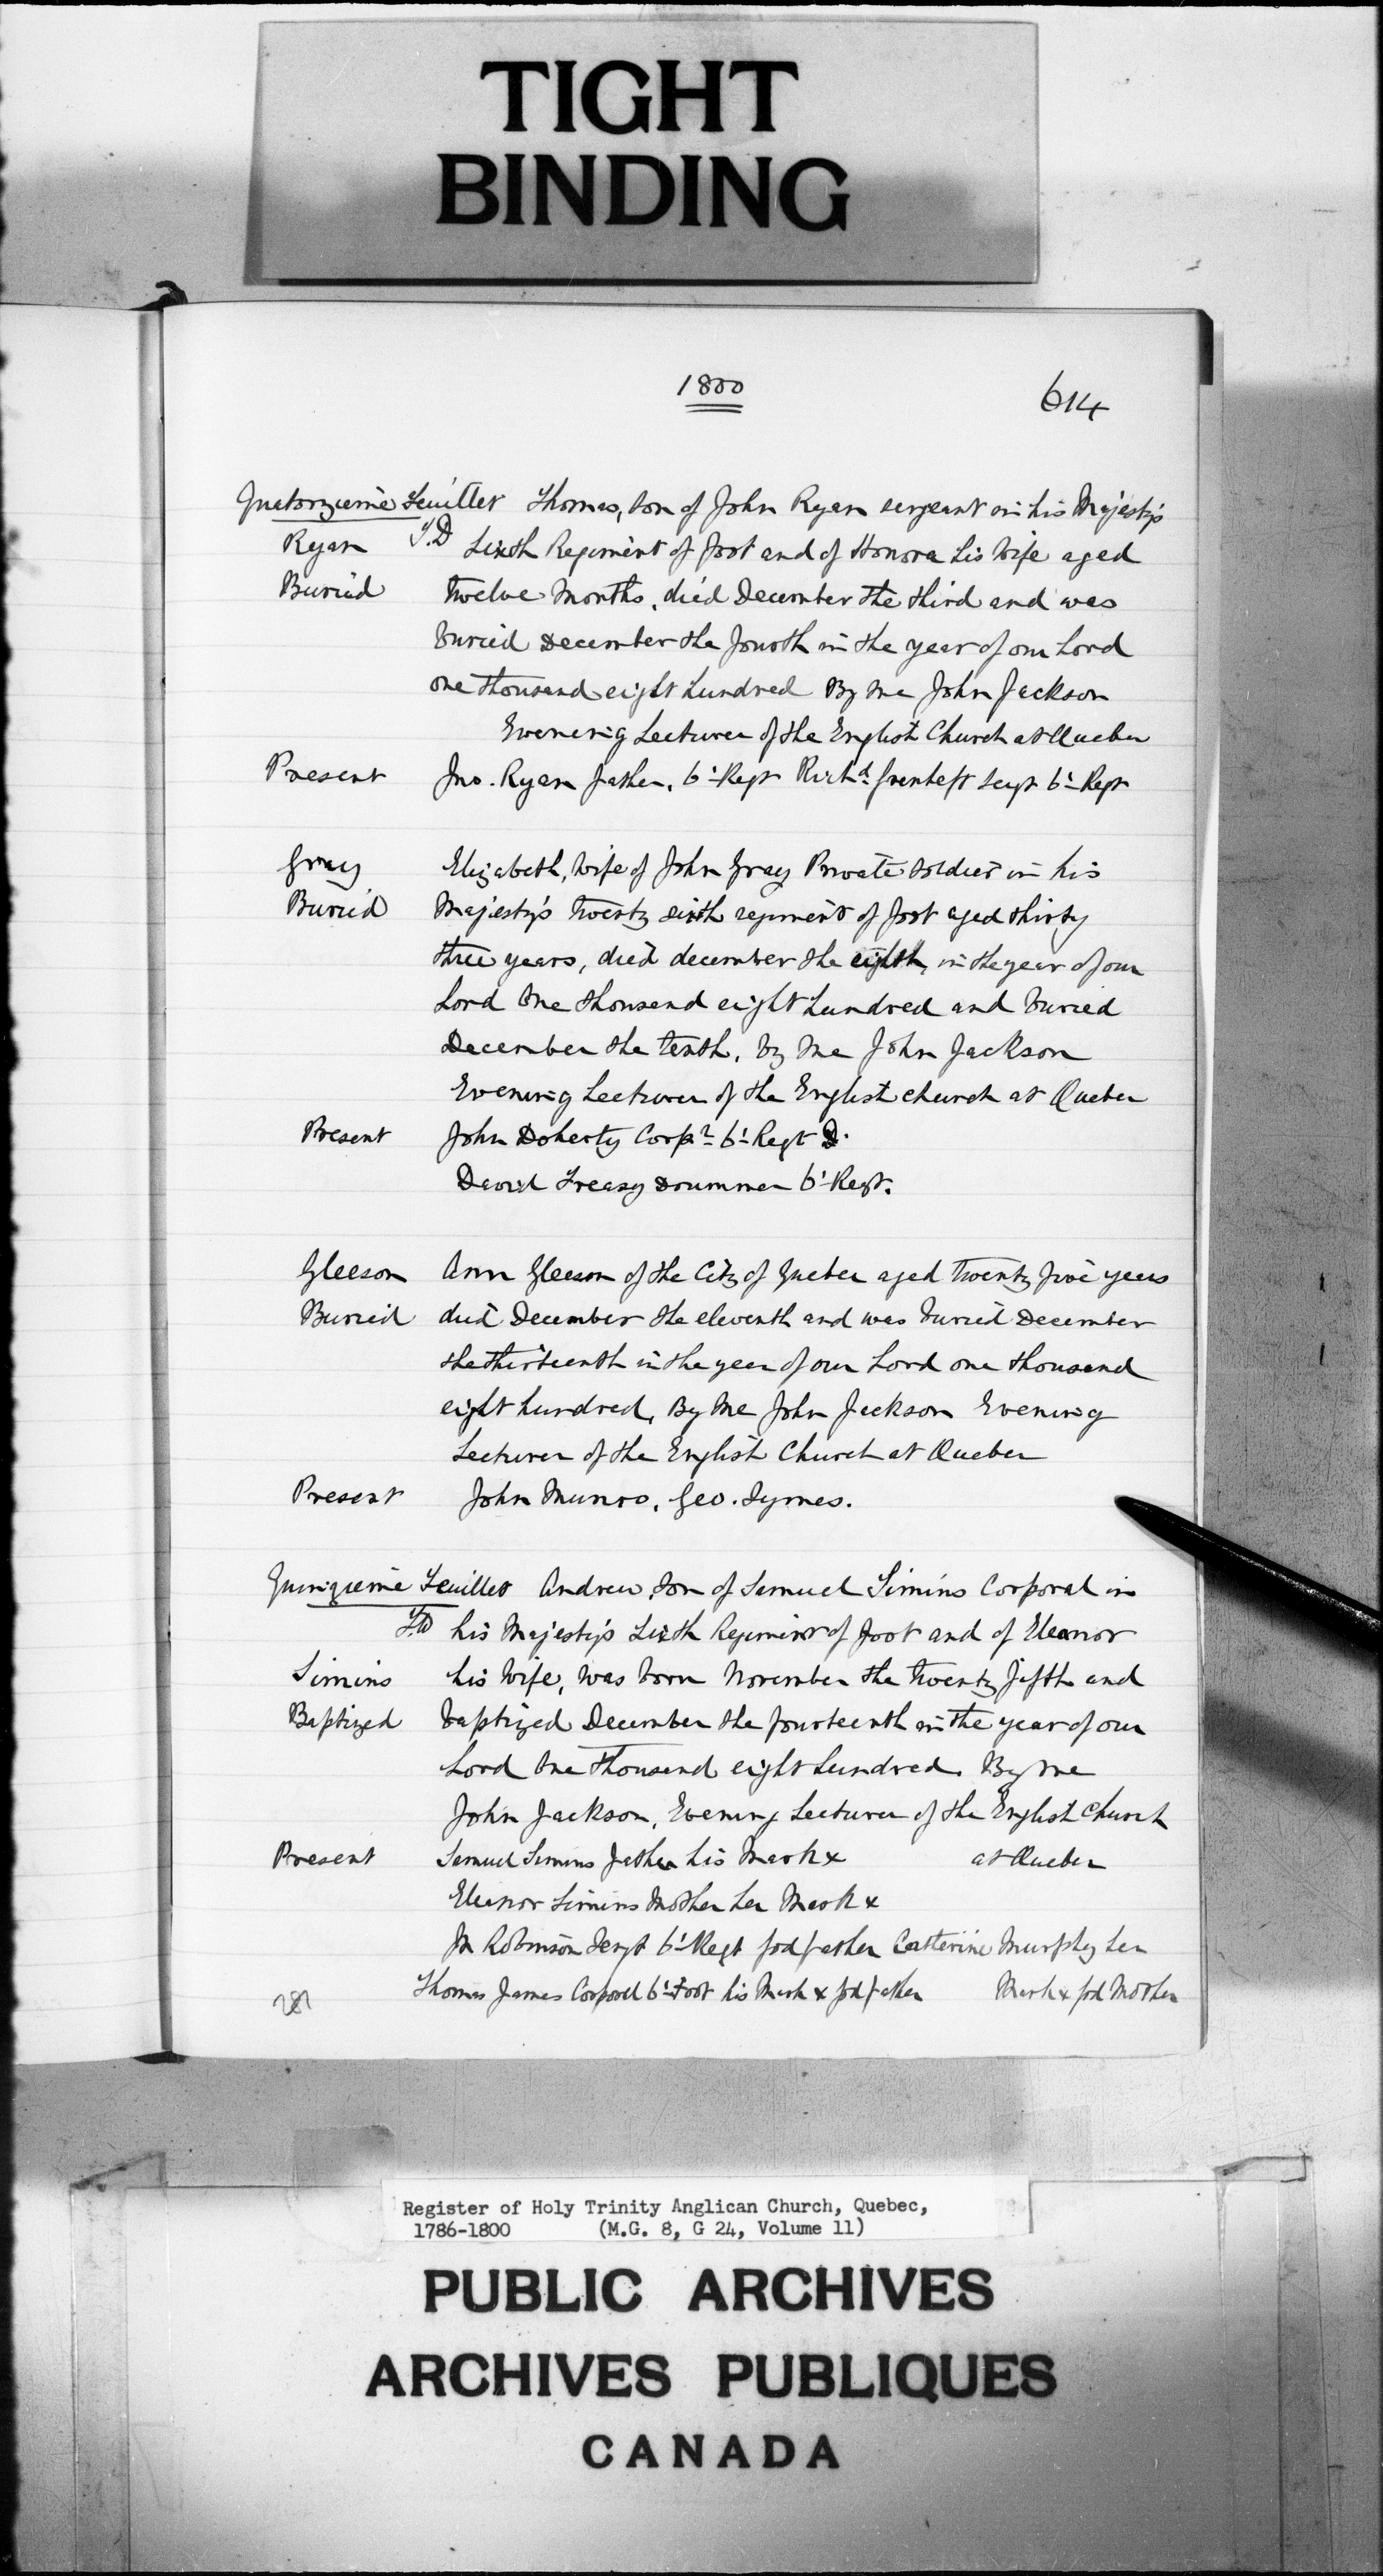 TIGHT
BINDING
1800
614
Quatorzieme feuillet Thomas, son of John Ryan sergeant in his Majesty's
Ryan T.D Sixth Regiment of foot and of Honora his Wife aged
Buried twelve months, died December the third and was
buried December the fourth in the year of our Lord
one thousand eight hundred By me John Jackson
Evening Lecturer of the English Church at Quebec
Present Jno. Ryan father, 6t Regt Richd. Sergt 6t Regt
Gray Elizabeth, wife of John Gray Private Soldier in his
Buried Majesty's twenty sixth regiment of foot aged thirty
three years, died december the eighth, in the year of our
Lord One thousand eight hundred and buried
December the tenth, by me John Jackson
Evening Lecturer of the English church at Quebec
Present John Doherty Corpl 6t Regt D.
David Treasy Drummer 6t Regt.
Gleeson Ann Gleeson of the City of Quebec aged twenty five years
Buried died December the eleventh and was buried December
the thirteenth in the year of our Lord one thousand
eight hundred, By Me John Jackson Evening
Lecturer of the English Church at Quebec
Present John Munro, Geo. Symes.
Quinzieme feuillet Andrew, Son of Samuel Simins Corporal in
T.D his Majesty's Sixth Regiment of foot and of Eleanor
Simins his Wife, was born November the twenty fifth and
Baptized baptized December the fourteenth in the year of our
Lord One thousand eight hundred. By me
John Jackson, Evening Lecturer of the English Church
Present Samuel Simins father his Mark x at Quebec
Eleanor Simins Mother her Mark x
Jn Robinson Sergt 6t Regt godfather Catterine Murphy her
Thomas James Corporal 6t Foot his Mark x godfather Mark x god Mother
Register of Holy Trinity Anglican Church, Quebec,
1786-1800 (M.G. 8, G 24, Volume 11)
PUBLIC ARCHIVES
ARCHIVES PUBLIQUES
CANADA